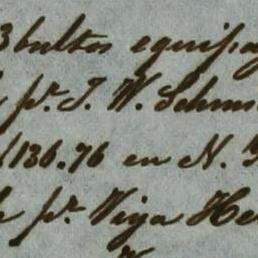 3 bultos equipa
pr. J. W. Schm
136.76 en N.
pr. Viya He